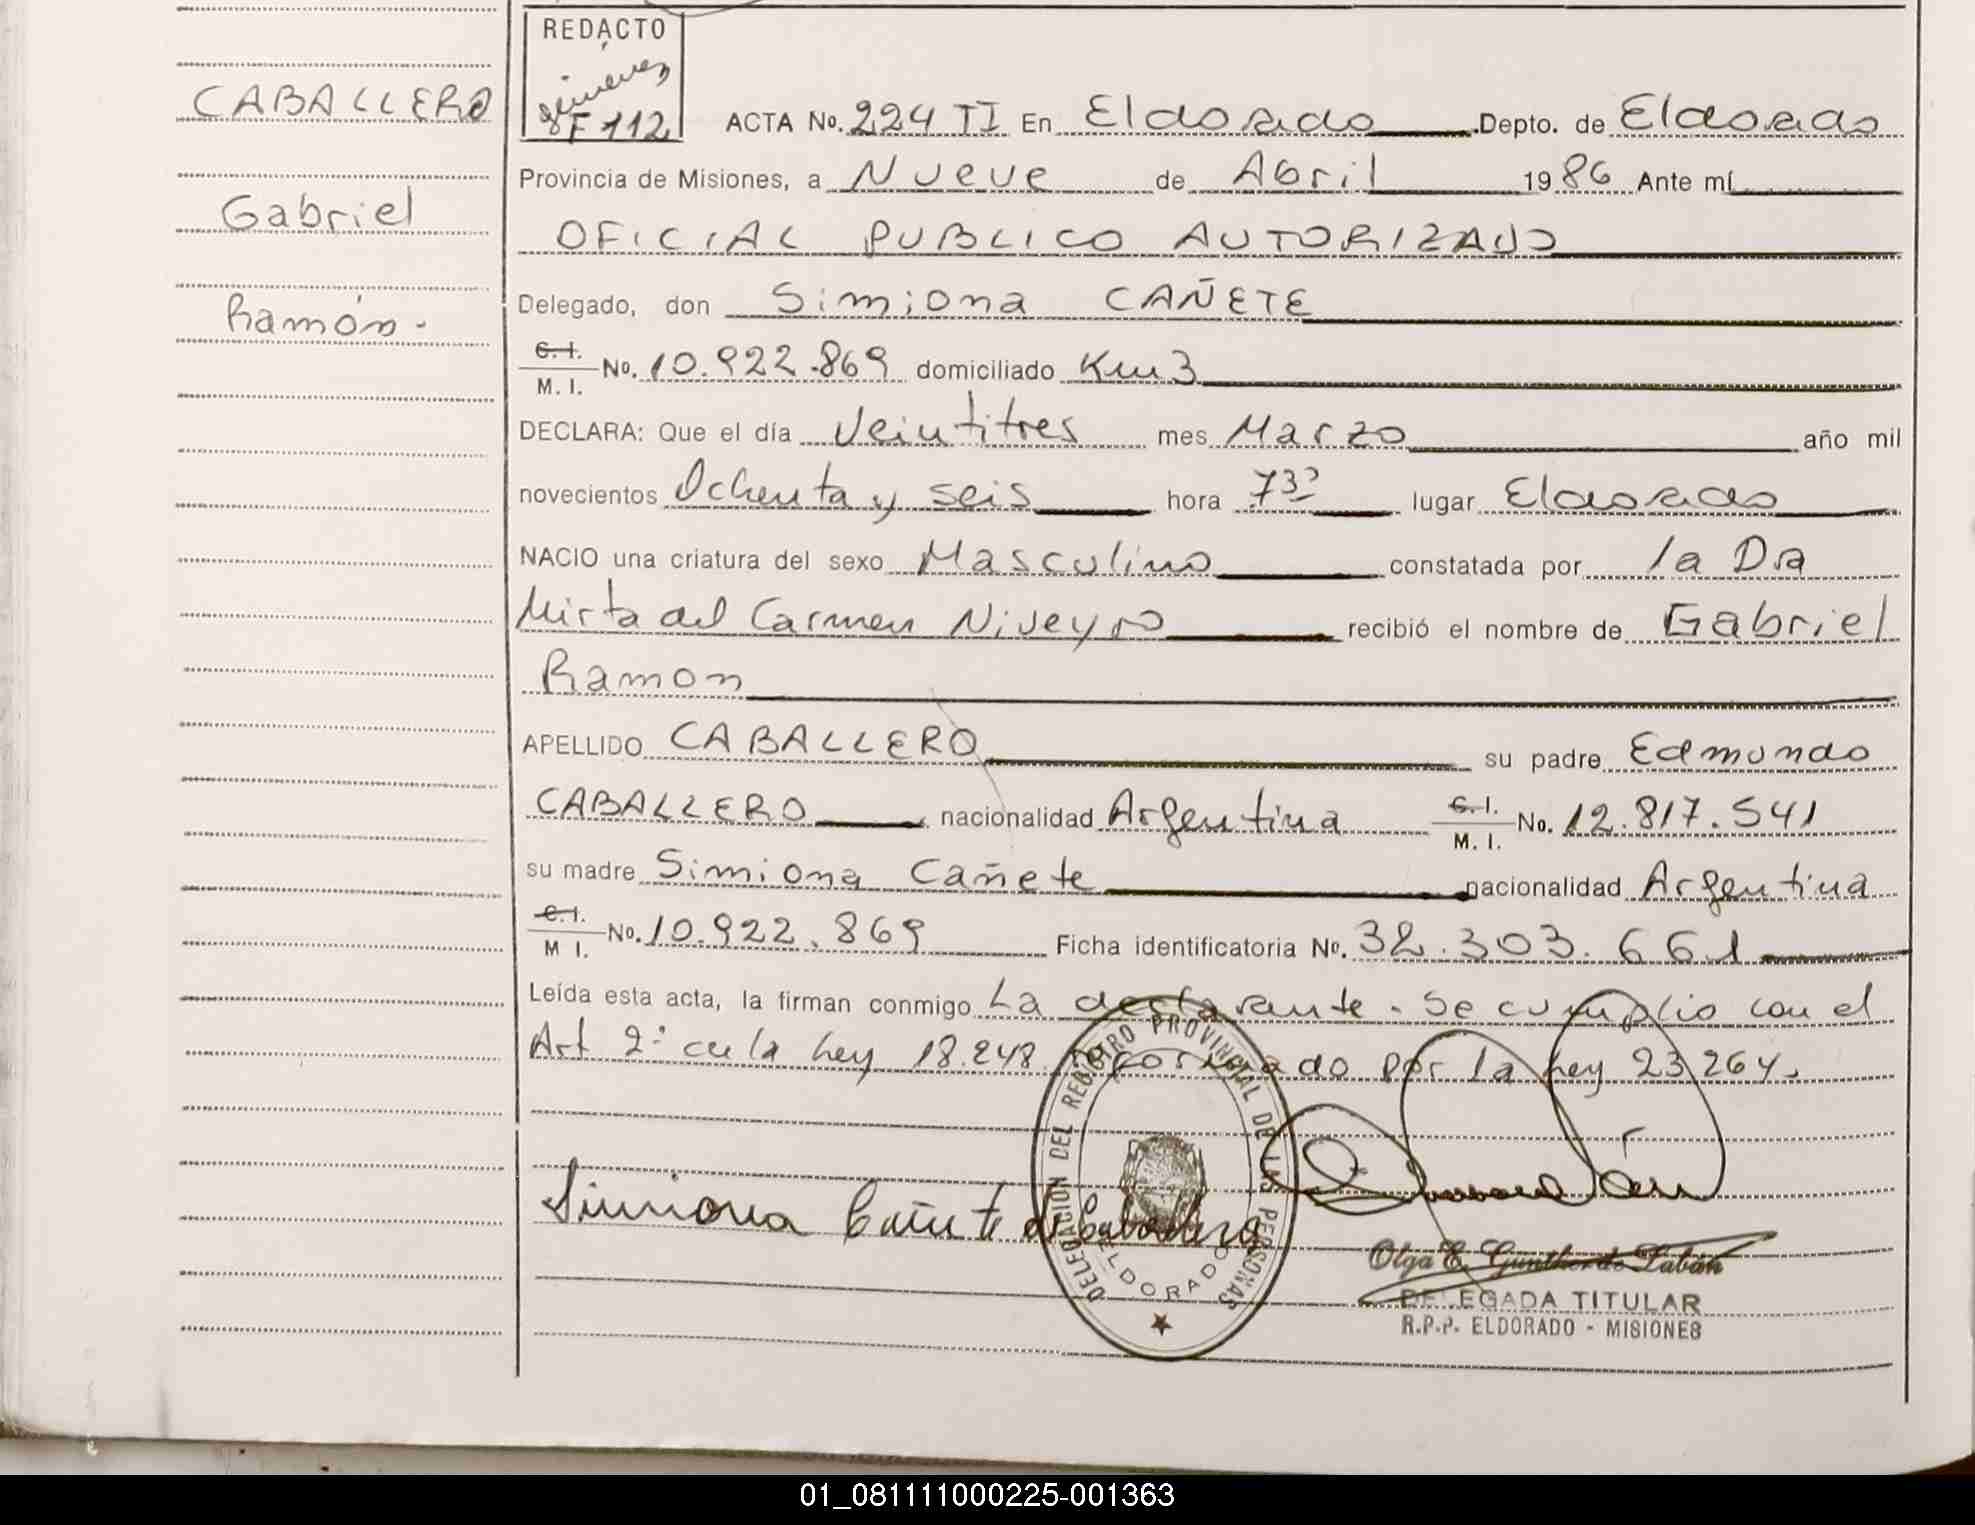 REDACTO
Gimenez
F 112
CABALLERO
Gabriel
Ramón.
ACTA No. 224 TI En Eldorado Depto. de Eldorado
Provincia de Misiones, a Nueve de Abril 1986 Ante mí
OFICIAL PUBLICO AUTORIZADO
Delegado, don Simiona CAÑETE
C. I. / M. I. No. 10.922.869 domiciliado Km 3
DECLARA: Que el día Veintitres mes Marzo año mil
novecientos Ochenta y seis hora 7³⁰ lugar Eldorado
NACIO una criatura del sexo Masculino constatada por la Dra
Mirta del Carmen Niveyro recibió el nombre de Gabriel
Ramon
APELLIDO CABALLERO su padre Edmundo
CABALLERO nacionalidad Argentina C. I. / M. I. No. 12.817.541
su madre Simiona Cañete nacionalidad Argentina
C. I. / M I. No. 10.922.869 Ficha identificatoria No. 32.303.661
Leída esta acta, la firman conmigo La declarante. Se cumplio con el
Art 2° de la Ley 18.248 reformado por la Ley 23.264.
Simiona Cañete de Caballero
DELEGACION DEL REGISTRO PROVINCIAL DE LAS PERSONAS
ELDORADO
Olga E. Gunther de Tabán
DELEGADA TITULAR
R.P.P. ELDORADO - MISIONES
01_081111000225-001363